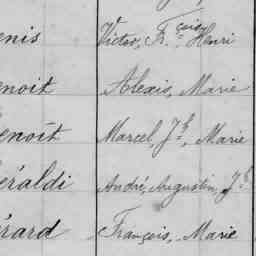 enis Victor, Fçois Henri
enoit Alexis, Marie
enoit Marcel, Jh, Marie
éraldi André, Augustin, Jh
érard François, Marie